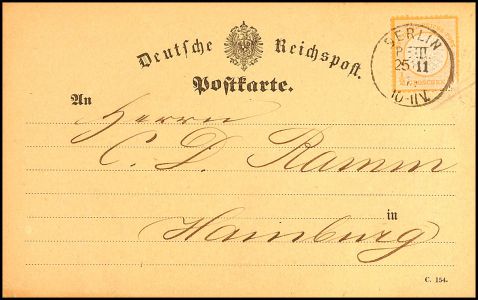 Deutsche Reichspost.
Postkarte.
BERLIN
25 11
10-11V.
An
Herrn
C. D. Ramm
in
Hamburg
C. 154.